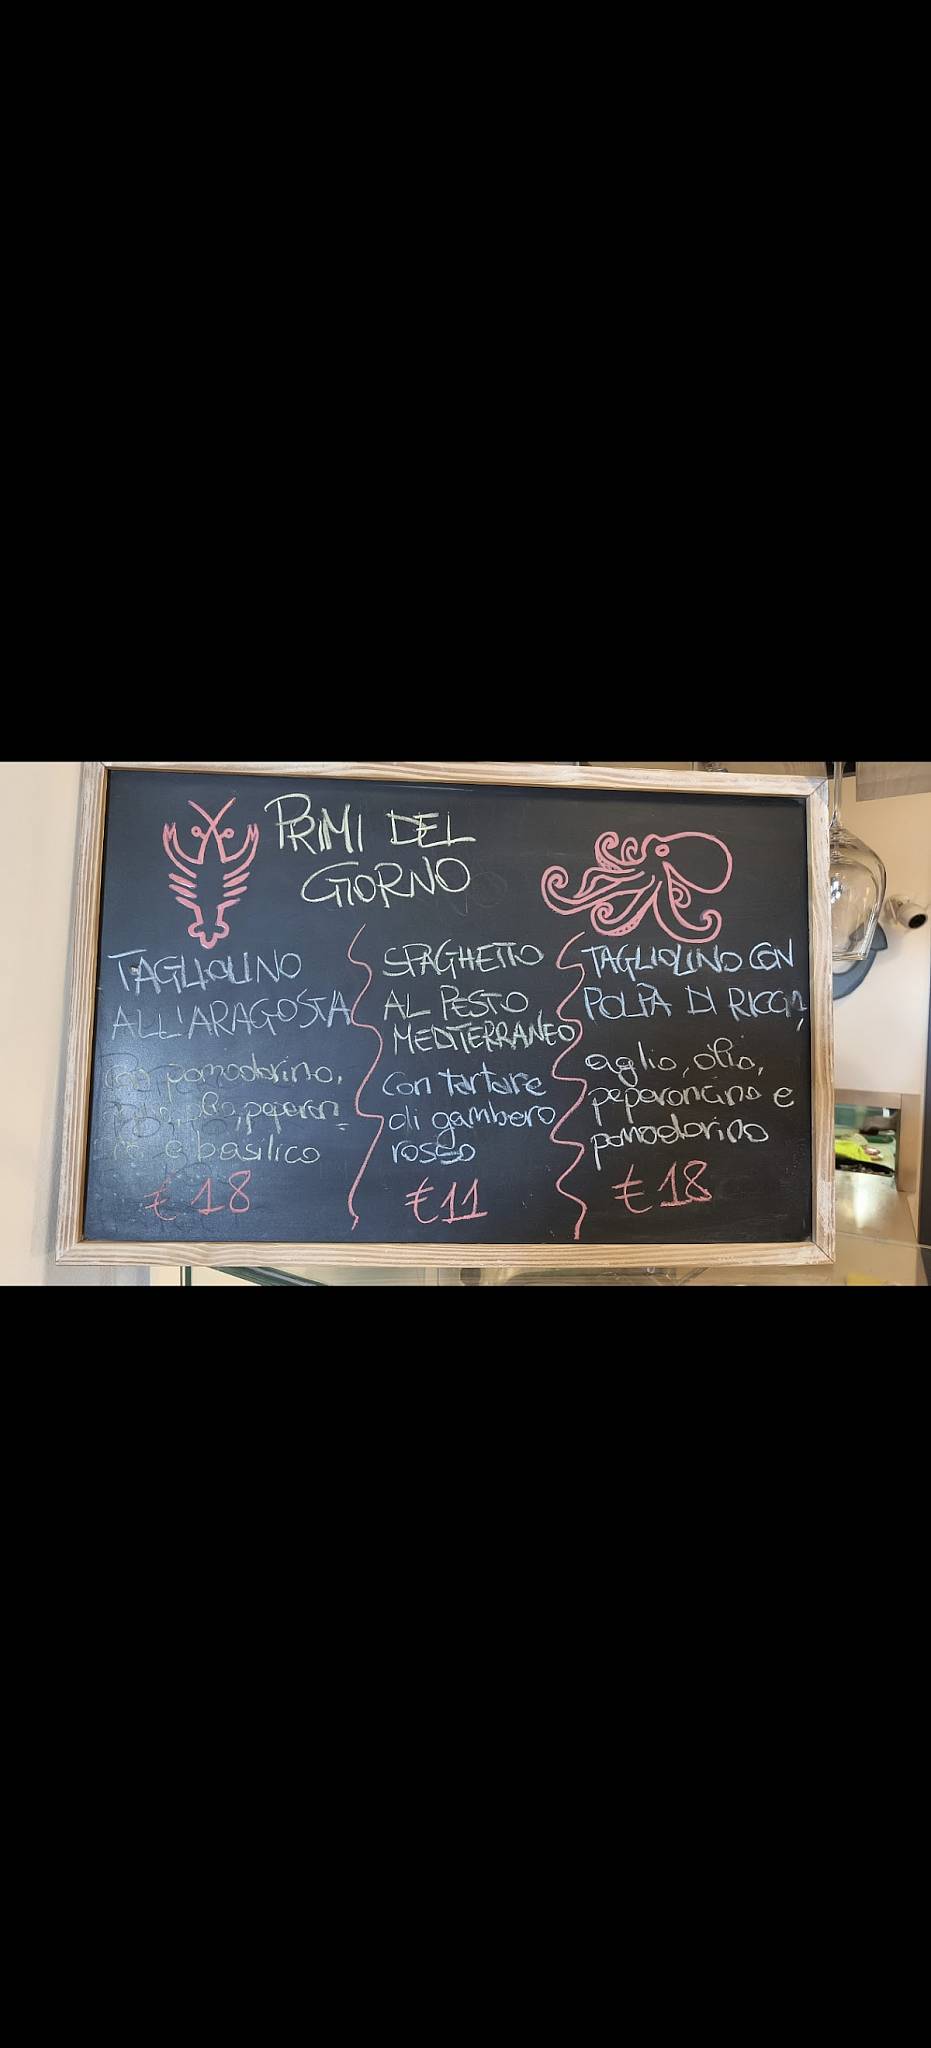 PRIMI DEL
GIORNO
TAGLIOLINO
ALL'ARAGOSTA
pomodorino,
olio, peperon
e basilico
€ 18
SPAGHETTO
AL PESTO
MEDITERRANEO
con tartare
di gambero
rosso
€ 11
TAGLIOLINO CON
POLPA DI RICCI,
aglio, olio,
peperoncino e
pomodorino
€ 18